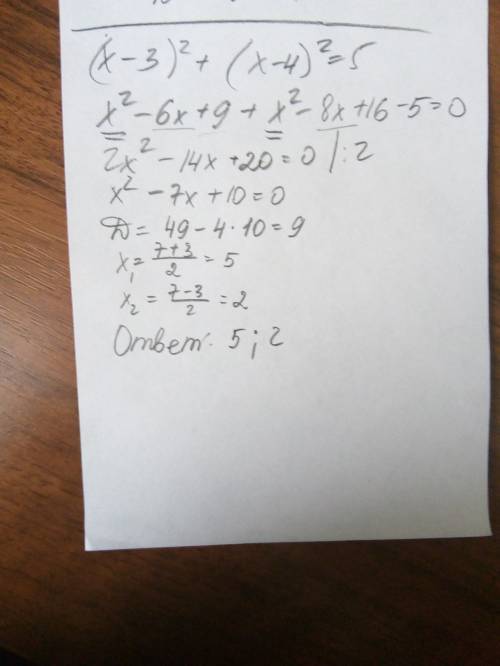 (x-3)² + (x-4)² = 5
x² - 6x + 9 + x² - 8x + 16 - 5 = 0
2x² - 14x + 20 = 0 |:2
x² - 7x + 10 = 0
D = 49 - 4·10 = 9
x₁ = (7+3)/2 = 5
x₂ = (7-3)/2 = 2
Ответ: 5; 2